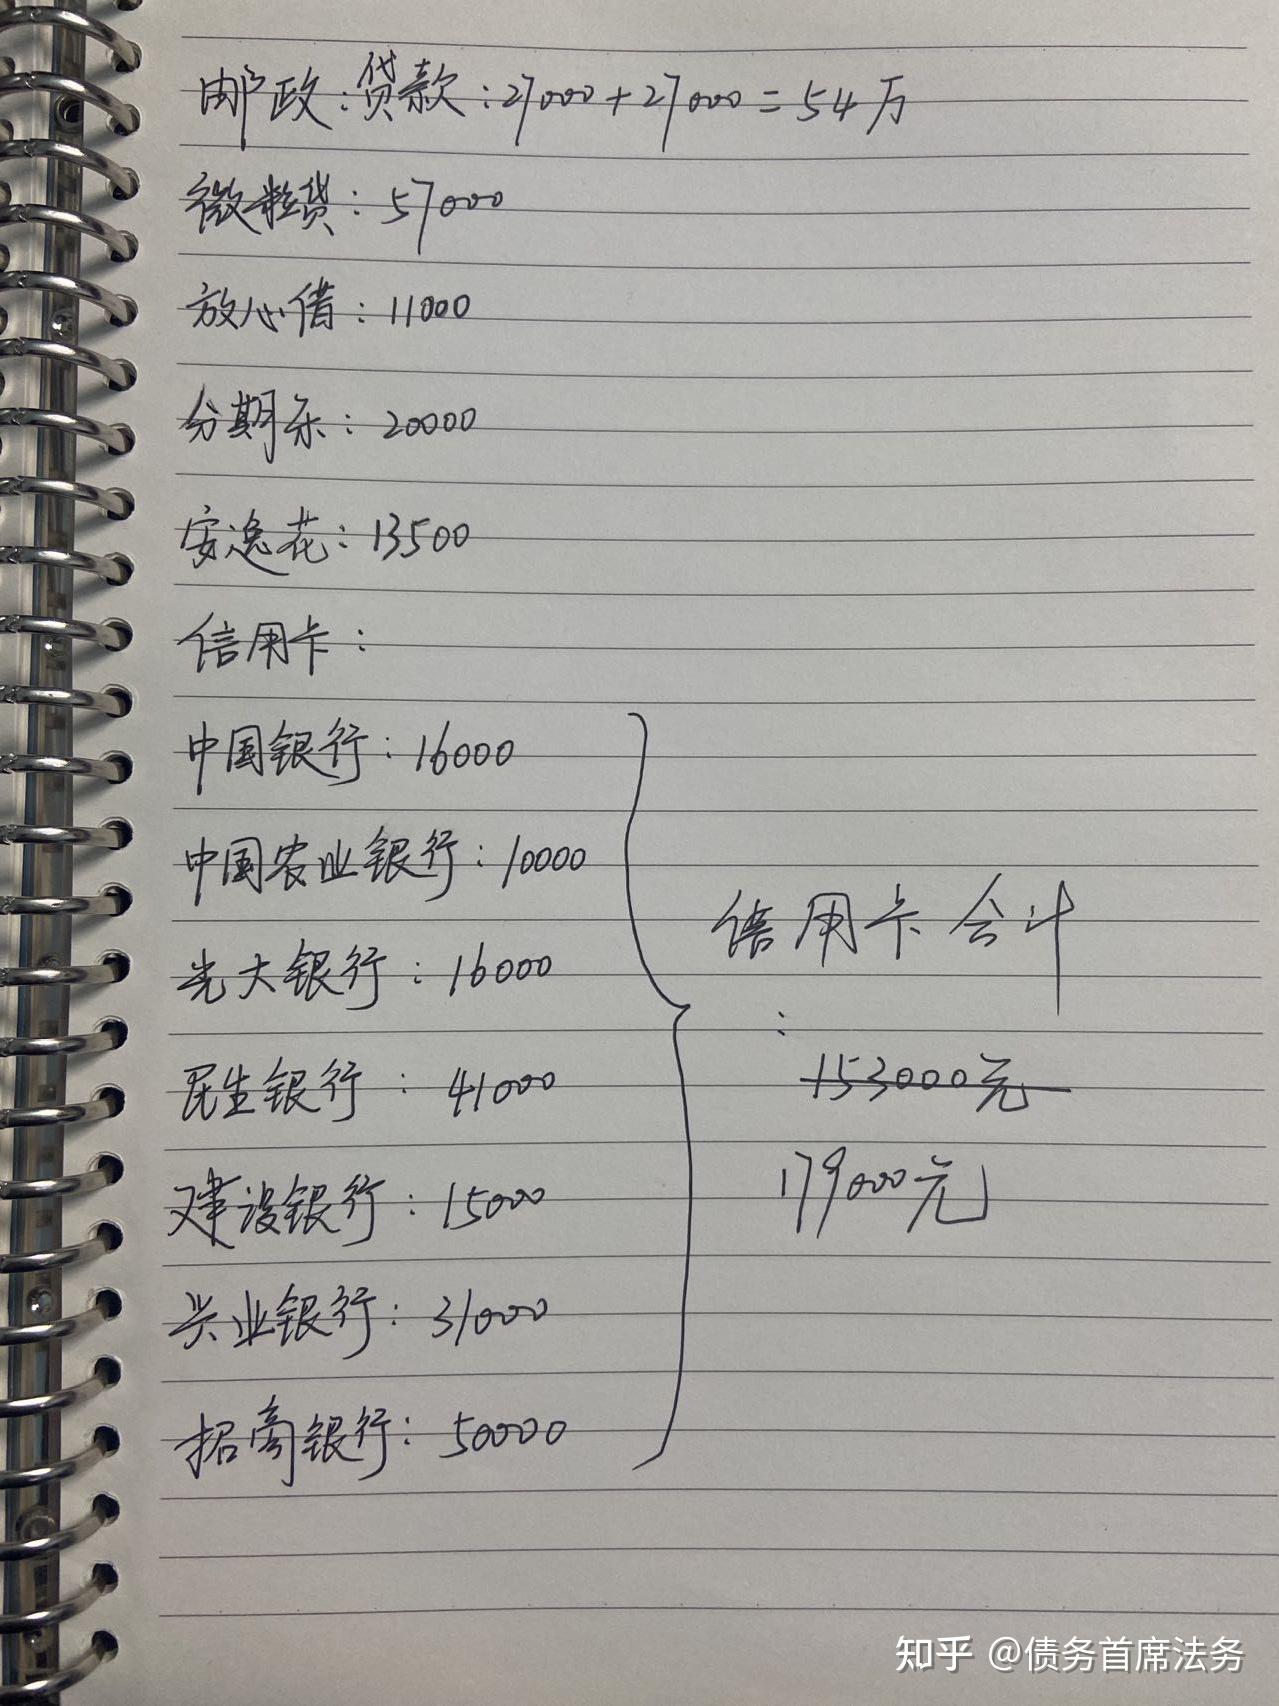 邮政:贷款:27000+27000=54万
微粒贷:57000
放心借:11000
分期乐:20000
安逸花:13500
信用卡:
中国银行:16000
中国农业银行:10000
光大银行:16000
民生银行:41000
建设银行:15000
兴业银行:31000
招商银行:50000
信用卡合计
:
153000元
179000元
知乎 @债务首席法务